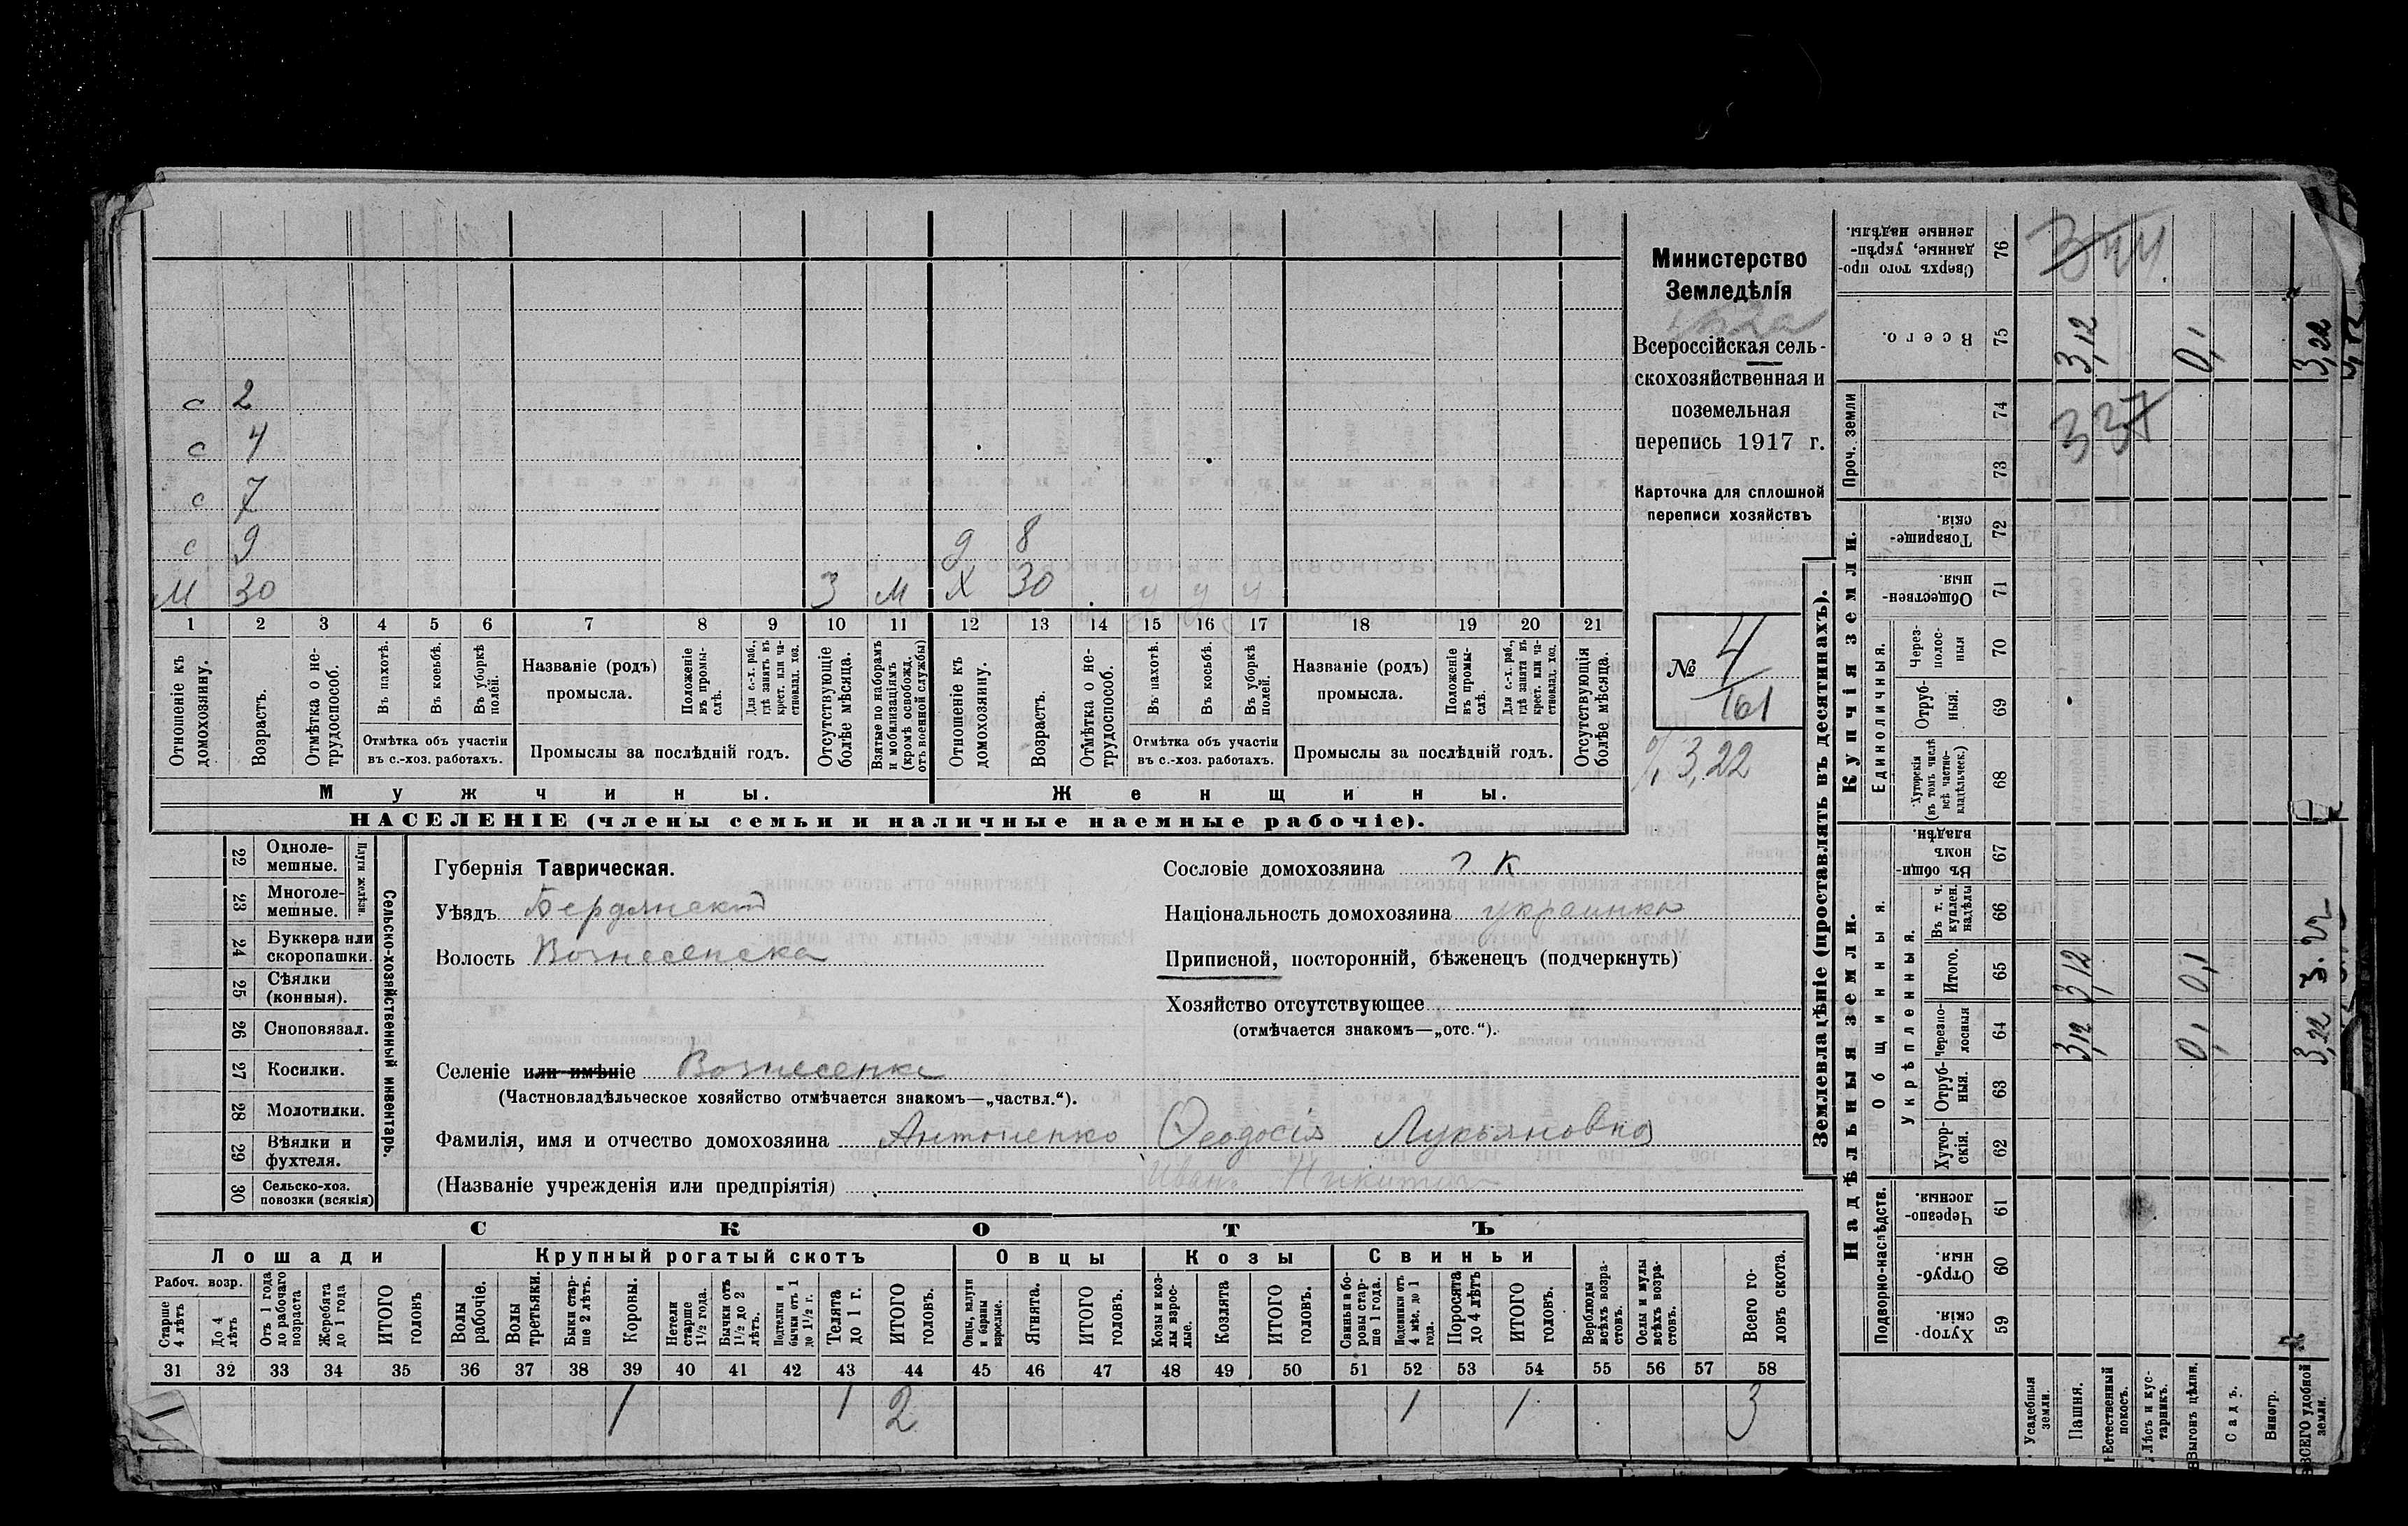 Министерство
Земледѣлія
Всероссійская сель-
скохозяйственная и
поземельная
перепись 1917 г.
Карточка для сплошной
переписи хозяйствъ
№ 4
161
3,22
с 2
с 4
с 7
с 9 д 8
М 30 3 М Х 30 ч ч ч
1 2 3 4 5 6 7 8 9 10 11 12 13 14 15 16 17 18 19 20 21
Отношеніе къ домохозяину.
Возрастъ.
Отмѣтка о не-
трудоспособ.
Въ пахотѣ.
Въ косьбѣ.
Въ уборкѣ полей.
Отмѣтка объ участіи
въ с.-хоз. работахъ.
Названіе (родъ)
промысла.
Положеніе
въ промы-
слѣ.
Для с.-х. раб.,
гдѣ занятъ въ
крест. или ча-
стновлад. хоз.
Промыслы за послѣдній годъ.
Отсутствующіе
болѣе мѣсяца.
Взятые по наборамъ
и мобилизаціямъ
(кромѣ освобожд.
отъ военной службы)
Отношеніе къ
домохозяину.
Возрастъ.
Отмѣтка о не-
трудоспособ.
Въ пахотѣ.
Въ косьбѣ.
Въ уборкѣ
полей.
Отмѣтка объ участіи
въ с.-хоз. работахъ.
Названіе (родъ)
промысла.
Положеніе
въ промы-
слѣ.
Для с.-х. раб.,
гдѣ занята въ
крест. или ча-
стновлад. хоз.
Промыслы за послѣдній годъ.
Отсутствующія
болѣе мѣсяца.
Мужчины. Женщины.
НАСЕЛЕНІЕ (члены семьи и наличные наемные рабочіе).
22 Одноле-
мешные.
23 Многоле-
мешные.
Плуги желѣзн.
24 Буккера или
скоропашки.
25 Сѣялки
(конныя).
26 Сноповязал.
27 Косилки.
28 Молотилки.
29 Вѣялки и
фухтеля.
30 Сельско-хоз.
повозки (всякія)
Сельско-хозяйственный инвентарь.
Губернія Таврическая.
Уѣздъ Бердянский
Волость Вознесенска
Сословіе домохозяина ? к
Національность домохозяина украинка
Приписной, посторонній, бѣженецъ (подчеркнуть)
Хозяйство отсутствующее
(отмѣчается знакомъ—„отс.“).
Селеніе или имѣніе Вознесенка
(Частновладѣльческое хозяйство отмѣчается знакомъ—„частвл.“).
Фамилія, имя и отчество домохозяина Антоненко Ѳеодосія Лукьяновна
Иванъ Никитич
(Названіе учрежденія или предпріятія)
СКОТЪ
Лошади Крупный рогатый скотъ Овцы Козы Свиньи
Рабоч. возр.
Старше
4 лѣтъ
До 4
лѣтъ
Отъ 1 года
до рабочаго
возраста
Жеребята
до 1 года
ИТОГО
головъ
Волы
рабочіе.
Волы
третьяки.
Быки стар-
ше 2 лѣтъ.
Коровы.
Нетели
старше
1½ года.
Бычки отъ
1½ до 2
лѣтъ.
Подтелки и
бычки отъ 1
до 1½ г.
Телята
до 1 г.
ИТОГО
головъ.
Овцы, валухи
и бараны
взрослые.
Ягнята.
ИТОГО
головъ.
Козы и коз-
лы взрос-
лые.
Козлята
ИТОГО
головъ.
Свиньи и бо-
ровы стар-
ше 1 года.
Подсвинки отъ
4 мѣс. до 1
года.
Поросята
до 4 лѣтъ
ИТОГО
головъ.
Верблюды
всѣхъ возра-
стовъ.
Ослы и мулы
всѣхъ возра-
стовъ.
Всего го-
ловъ скота.
31 32 33 34 35 36 37 38 39 40 41 42 43 44 45 46 47 48 49 50 51 52 53 54 55 56 57 58
1 1 2 1 1 3
Землевладѣніе (проставлять въ десятинахъ).
Надѣльныя земли. Купчія земли. Проч. земли
Подворно-наслѣдств.
Общинныя.
Укрѣпленныя.
Единоличныя.
Хутор-
скія. 59
Отруб-
ныя. 60
Черезпо-
лосныя. 61
Хутор-
скія. 62
Отруб-
ныя. 63
Черезпо-
лосныя 64
Итого. 65
Въ т. ч.
куплен.
надѣлы 66
Въ общи
номъ
владѣн. 67
Хуторскія
(въ томъ числѣ
всѣ частно-
владѣльческ.) 68
Отруб-
ныя. 69
Через-
полос-
ныя 70
Обществен-
ныя. 71
Товарище-
скія. 72
73
74
Всего. 75
Сверхъ того про-
данные, укрѣп-
ленные надѣлы. 76
Усадебныя
земли.
Пашня. 3,12 3,12 337 3,12 344
Естественный
покосъ.
Лѣсъ и кус-
тарникъ.
Выгонъ цѣлин. 0,1 0,1 0,1
Садъ.
Виногр.
ВСЕГО удобной
земли. 3,22 3.22 3,22